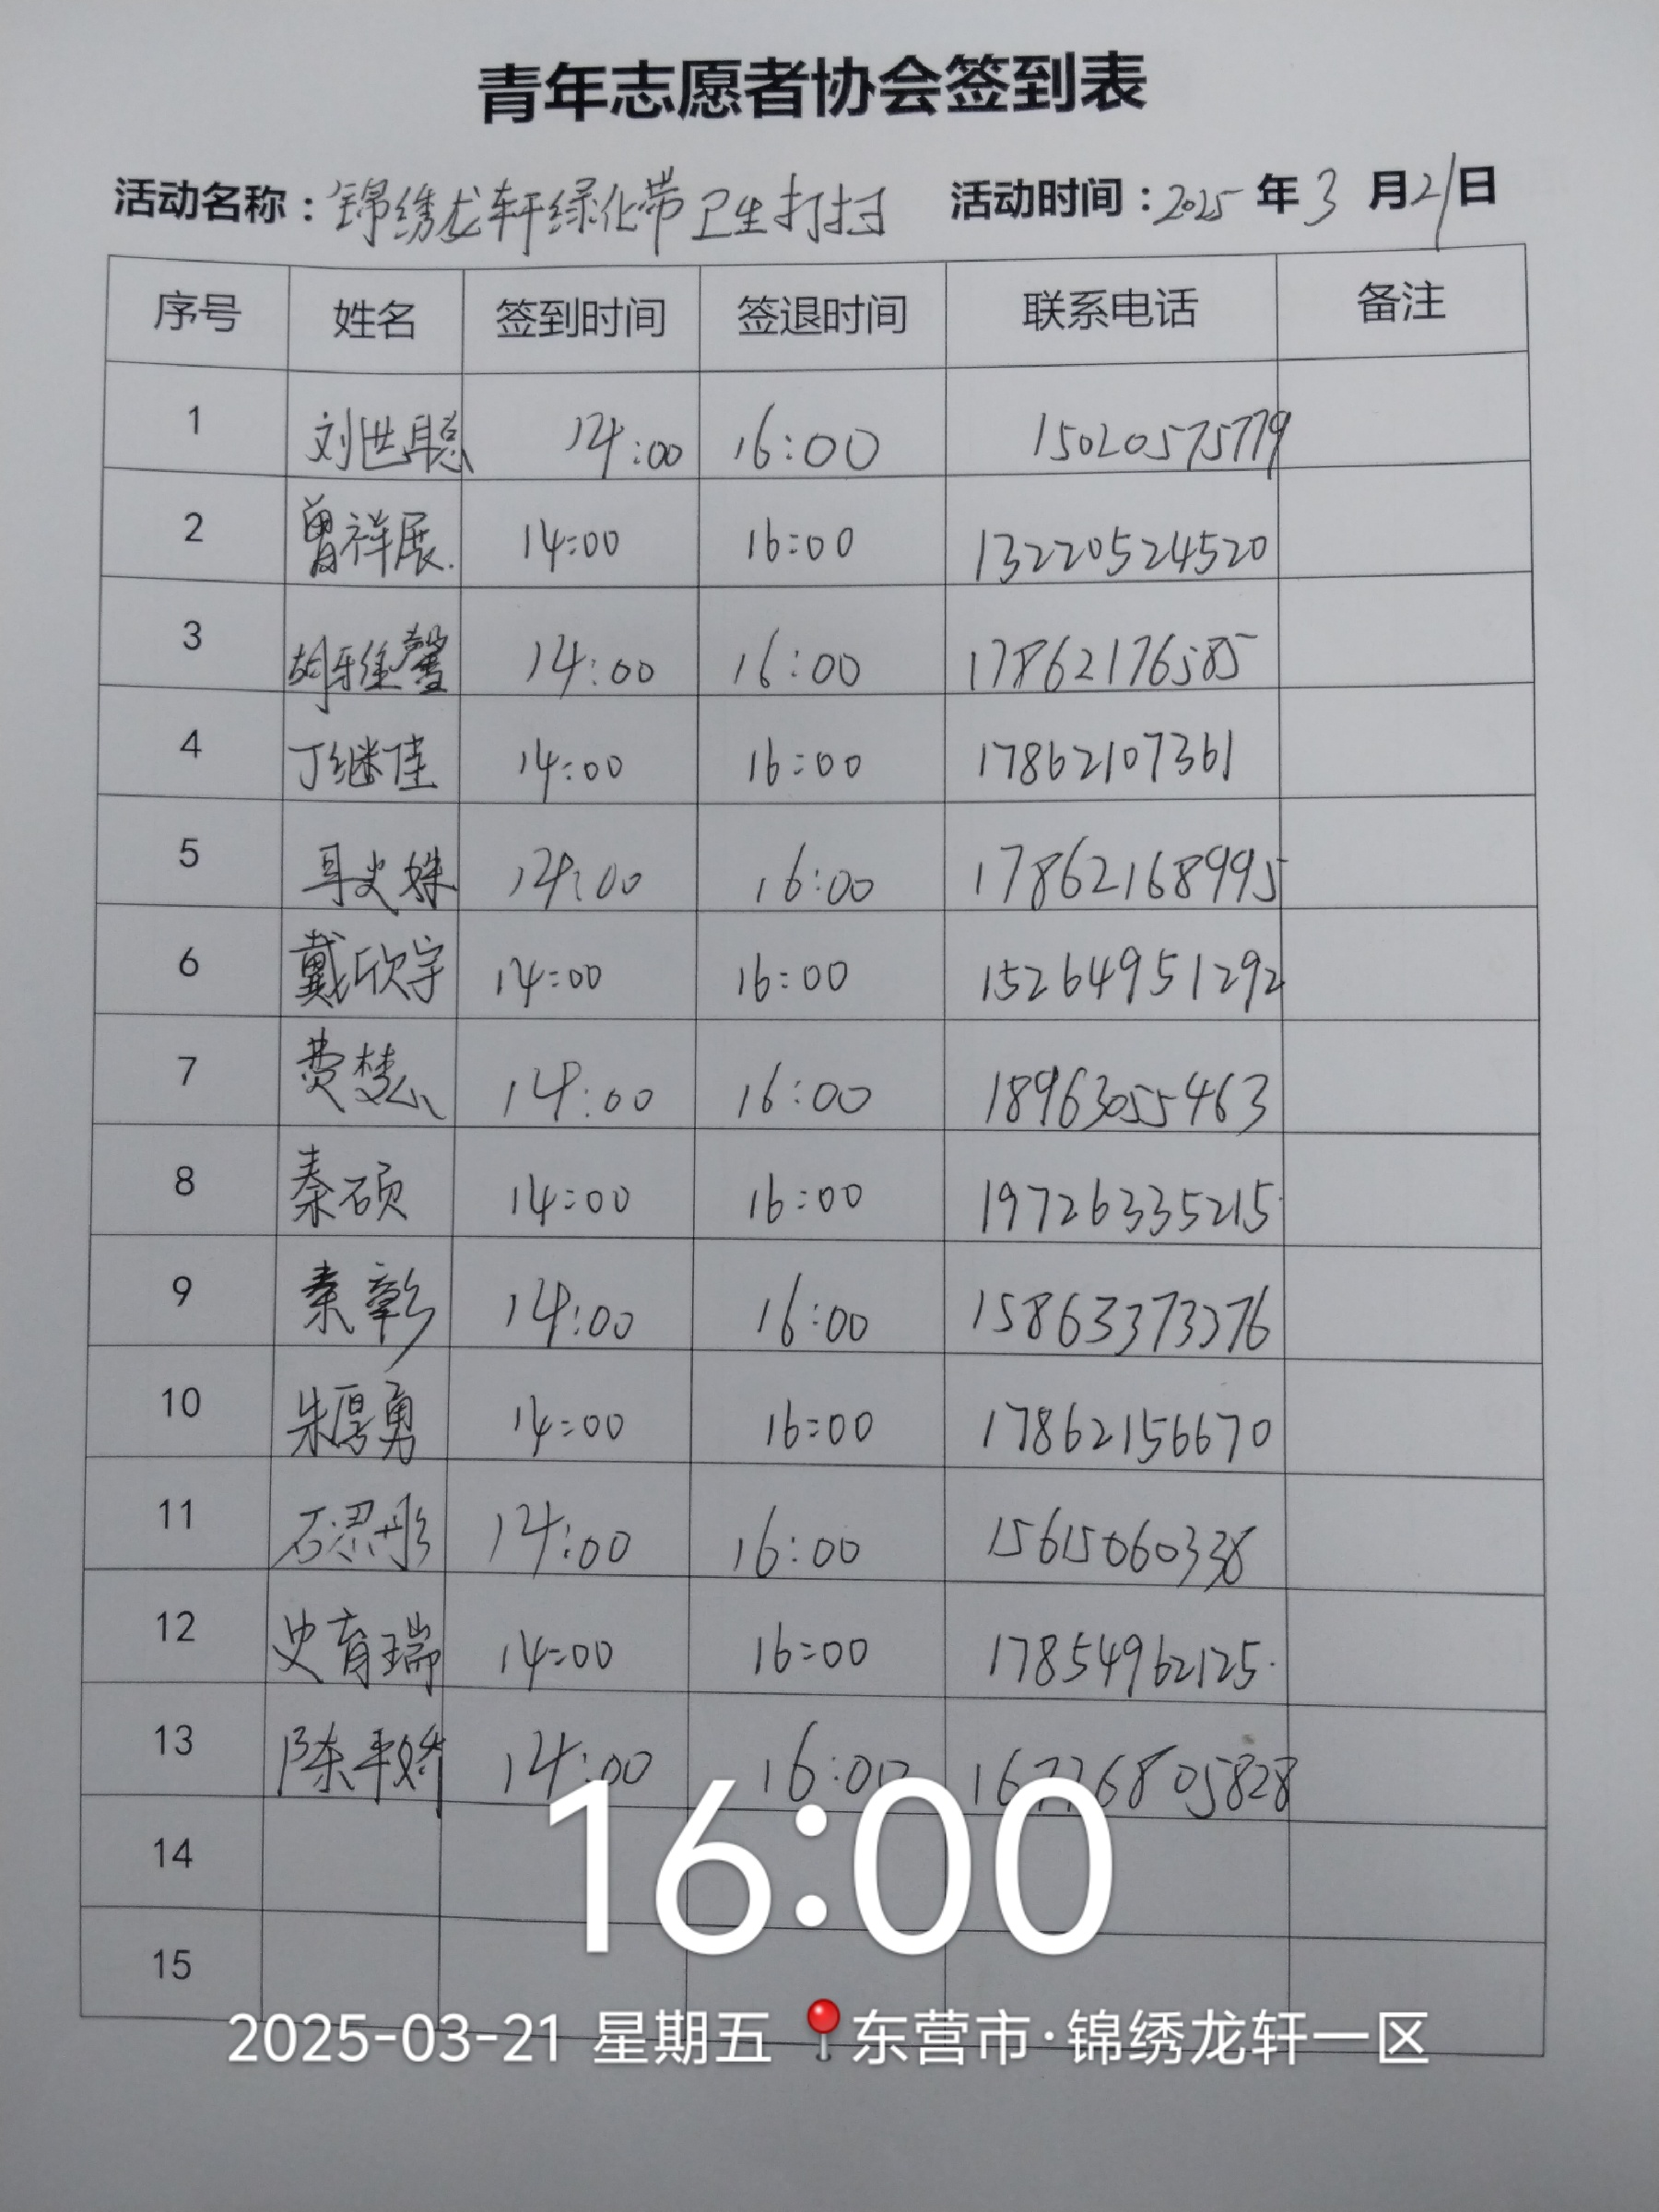 青年志愿者协会签到表
活动名称：锦绣龙轩绿化带卫生打扫 活动时间：2025年3月21日
序号 姓名 签到时间 签退时间 联系电话 备注
1 刘世聪 14:00 16:00 15020575779
2 曾祥展. 14:00 16:00 13220524520
3 胡雅馨 14:00 16:00 17862176585
4 丁继佳 14:00 16:00 17862107361
5 14:00 16:00 17862168995
6 戴欣宇 14:00 16:00 15264951292
7 14:00 16:00 18963055463
8 秦硕 14:00 16:00 19726335215
9 秦彰 14:00 16:00 15863373276
10 朱厚勇 14:00 16:00 17862156670
11 14:00 16:00 15615060338
12 史育瑞 14:00 16:00 17854962125.
13 陈平娇 14:00 16:00
14
15
16:00
2025-03-21 星期五 东营市·锦绣龙轩一区